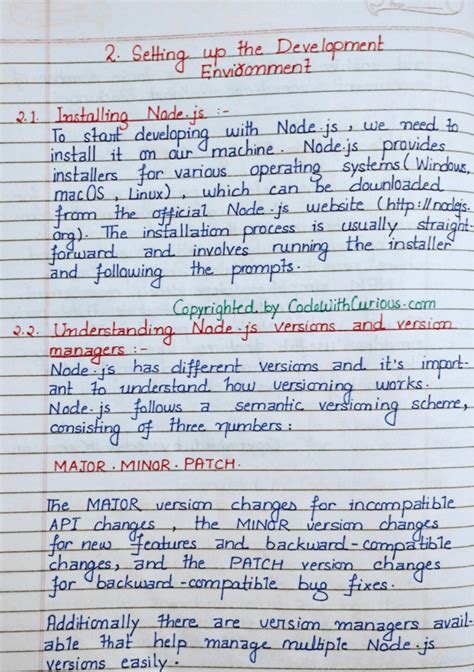 2. Setting up the Development
Environment
2.1. Installing Node.js :-
To start developing with Node.js , we need to
install it on our machine. Node.js provides
installers for various operating systems (Windows,
macOS , Linux) , which can be downloaded
from the official Node.js website (http://nodejs.
org). The installation process is usually straight-
forward and involves running the installer
and following the prompts.
Copyrighted by CodeWithCurious.com
2.2. Understanding Node.js versions and version
managers :-
Node.js has different versions and it's import-
ant to understand how versioning works.
Node.js follows a semantic versioning scheme,
consisting of three numbers :
MAJOR . MINOR . PATCH.
The MAJOR version changes for incompatible
API changes , the MINOR version changes
for new features and backward-compatible
changes, and the PATCH version changes
for backward-compatible bug fixes.
Additionally there are version managers avail-
able that help manage multiple Node.js
versions easily.